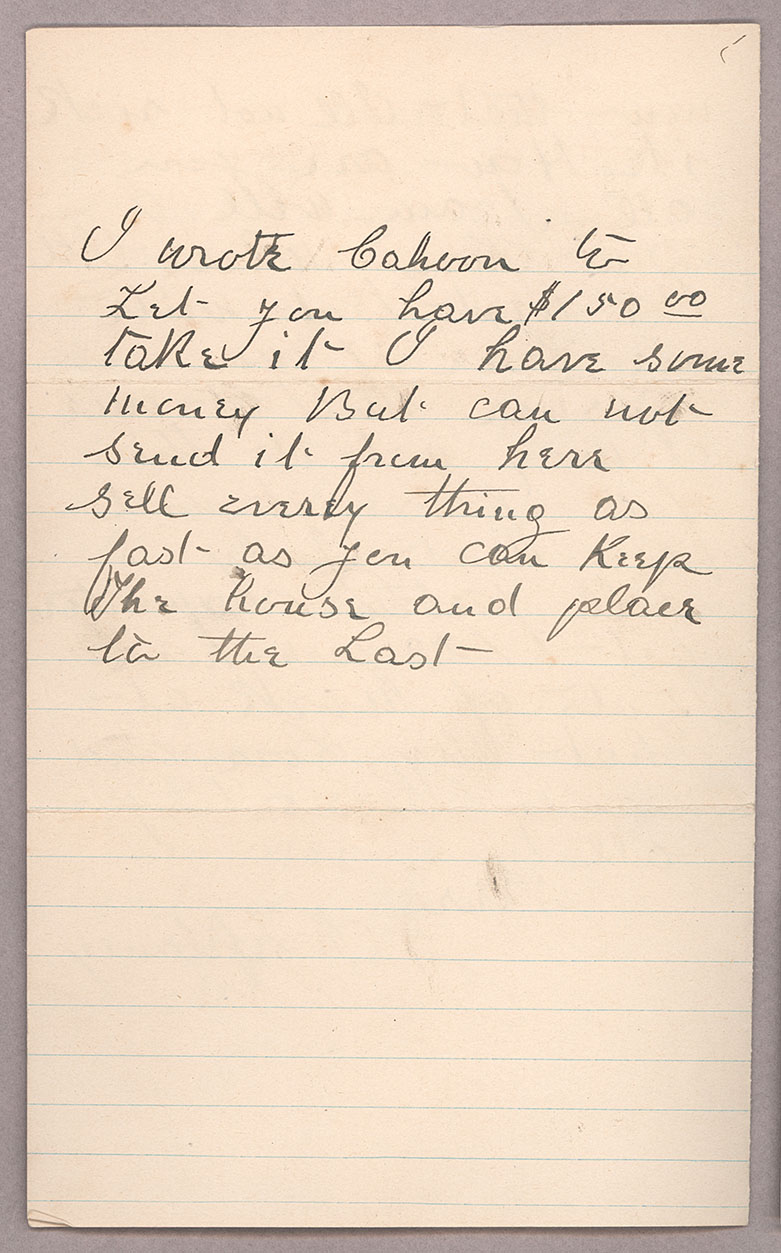 I wrote Cahoon to
Let you have $150 00
take it I have some
money But can not
send it from here
sell everey thing as
fast as you can Keep
The house and place
to the Last